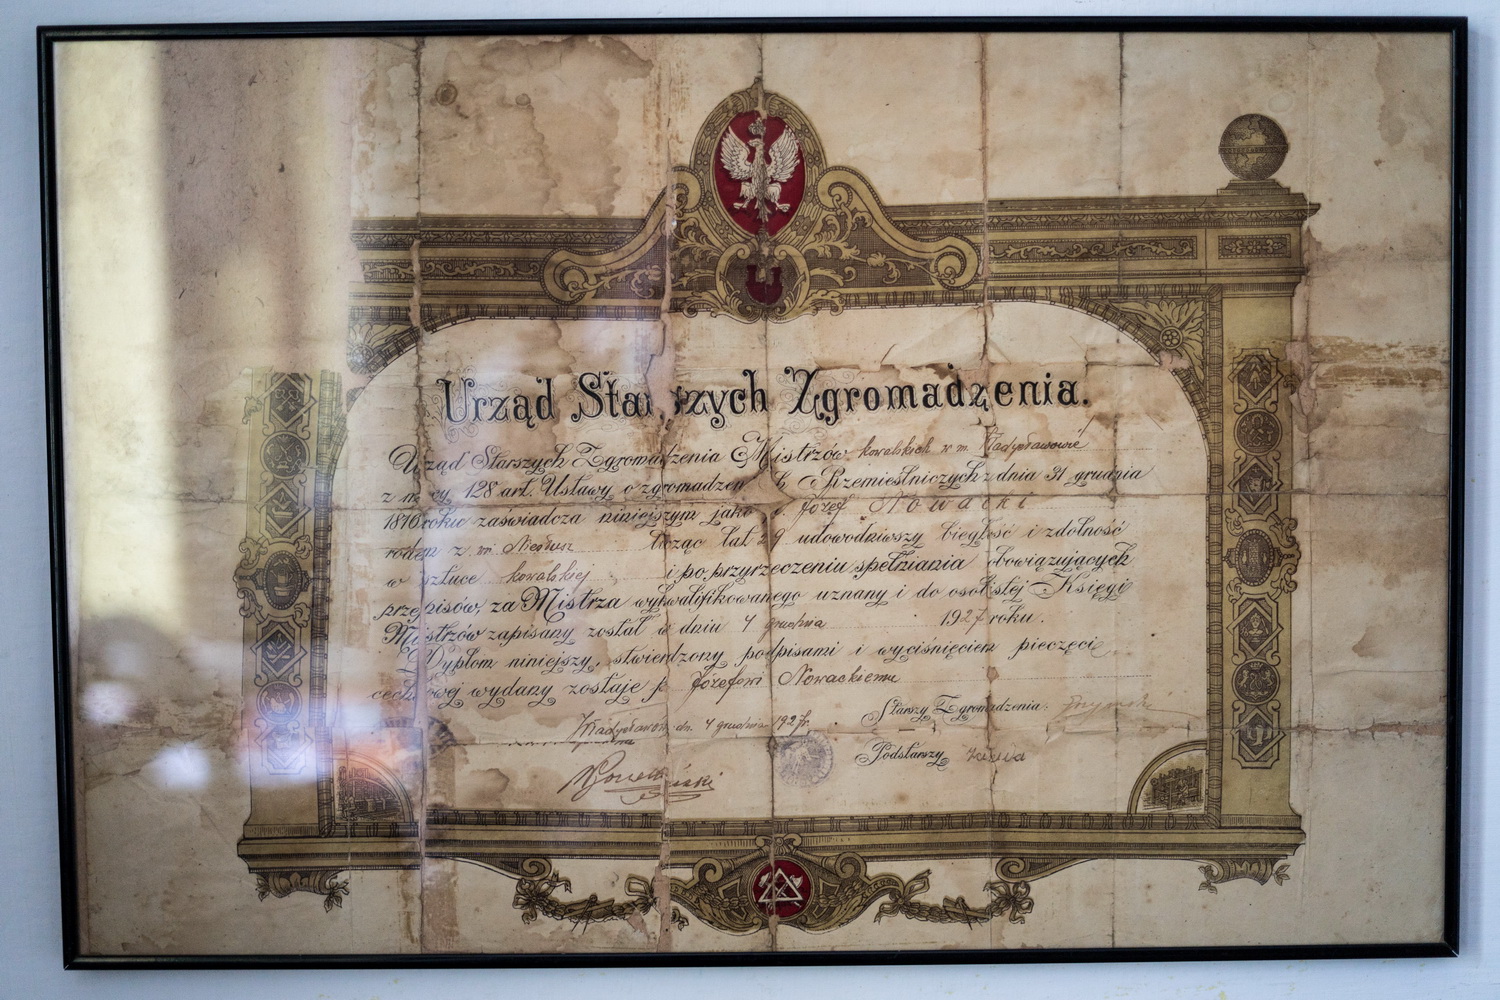 Urząd Starszych Zgromadzenia.
Urząd Starszych Zgromadzenia Mistrzów kowalskich w m. Władysławowie
z mocy 128 art. Ustawy o zgromadzen Rzemieślniczych z dnia 31 grudnia
1816 roku zaświadcza niniejszym jako p. Józef Nowacki
rodem z wsi licząc lat 29 udowodniwszy biegłość i zdolność
w sztuce kowalskiej i po przyrzeczeniu spełniania obowiązujących
przepisów, za Mistrza wykwalifikowanego uznany i do osobistej Księgi
Mistrzów zapisany został w dniu 4 grudnia 1927 roku.
Dyplom niniejszy, stwierdzony podpisami i wyciśnięciem pieczęci
cechowej wydany zostaje p. Józefowi Nowackiemu
Władysławów dn. 4 grudnia 1927r. Starszy Zgromadzenia:
Podstarszy